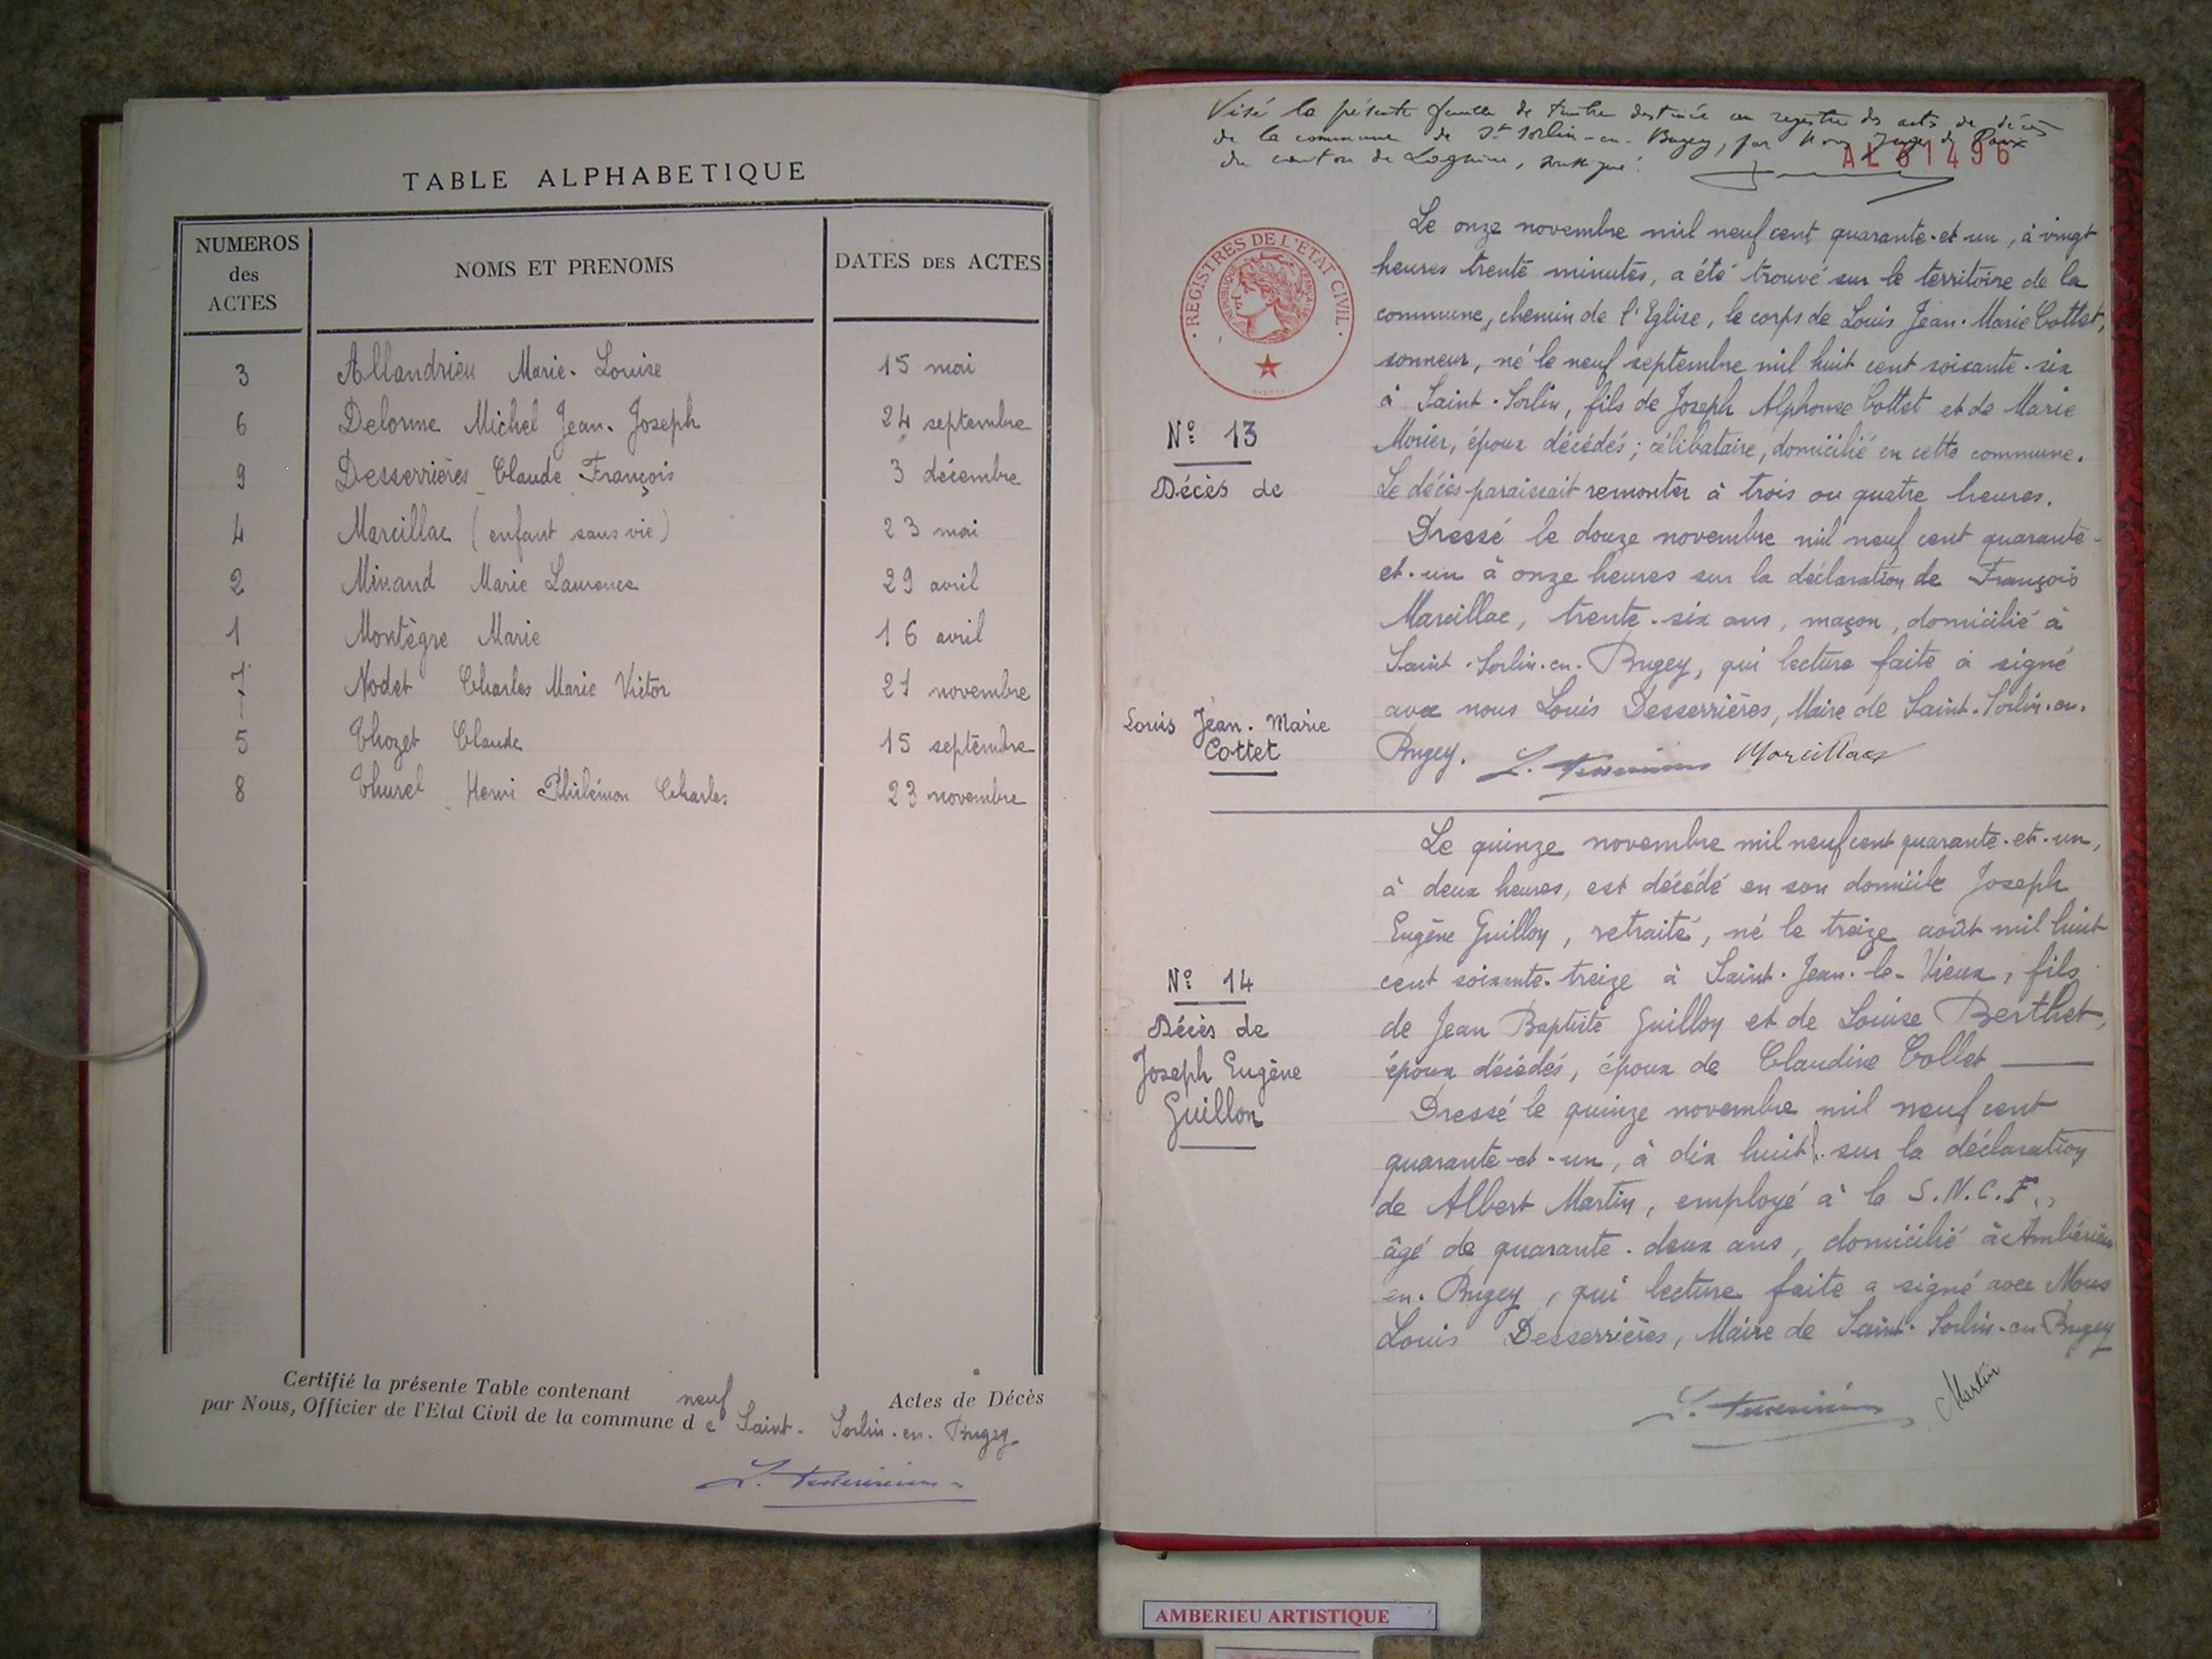 TABLE ALPHABETIQUE
NUMEROS des ACTES NOMS ET PRENOMS DATES DES ACTES
3 Allandrieu Marie-Louise 15 mai
6 Delorme Michel Jean-Joseph 24 septembre
9 Desserrières Claude François 3 décembre
4 Marcillac (enfant sans vie) 23 mai
2 Minand Marie Laurence 29 avril
1 Montègre Marie 16 avril
7 Nodet Charles Marie Victor 21 novembre
5 Thozet Claude 15 septembre
8 Thurel Henri Philémon Charles 23 novembre
Certifié la présente Table contenant neuf Actes de Décès
par Nous, Officier de l'Etat Civil de la commune de Saint-Sorlin-en-Bugey
Visé la présente feuille de timbre destinée au registre des actes de décès
de la commune de St Sorlin-en-Bugey, par Nous Juge de Paix
du canton de Lagnieu, soussigné:
AL 81496
REGISTRES DE L'ETAT CIVIL
REPUBLIQUE FRANÇAISE
N° 13
Décès de
Louis Jean-Marie
Cottet
Le onze novembre mil neuf cent quarante-et un, à vingt
heures trente minutes, a été trouvé sur le territoire de la
commune, chemin de l'Eglise, le corps de Louis Jean-Marie Cottet,
sonneur, né le neuf septembre mil huit cent soixante-six
à Saint-Sorlin, fils de Joseph Alphonse Cottet et de Marie
Morier, époux décédés; célibataire, domicilié en cette commune.
Le décès paraissait remonter à trois ou quatre heures.
Dressé le douze novembre mil neuf cent quarante-
et-un à onze heures sur la déclaration de François
Marcillac, trente-six ans, maçon, domicilié à
Saint-Sorlin-en-Bugey, qui lecture faite a signé
avec nous Louis Desserrières, Maire de Saint-Sorlin-en-
Bugey. Marcillac
N° 14
Décès de
Joseph Eugène
Guillon
Le quinze novembre mil neuf cent quarante-et-un,
à deux heures, est décédé en son domicile Joseph
Eugène Guillon, retraité, né le treize août mil huit
cent soixante-treize à Saint-Jean-le-Vieux, fils
de Jean Baptiste Guillon et de Louise Berthet,
époux décédés, époux de Claudine Collet
Dressé le quinze novembre mil neuf cent
quarante-et-un, à dix huit h. sur la déclaration
de Albert Martin, employé à la S.N.C.F.,
âgé de quarante-deux ans, domicilié à Ambérieu
en-Bugey, qui lecture faite a signé avec Nous
Louis Desserrières, Maire de Saint-Sorlin-en Bugey
Martin
AMBERIEU ARTISTIQUE